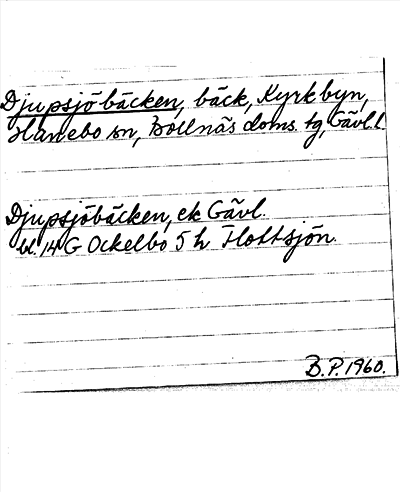 Djupsjöbäcken, bäck, Kyrkbyn,
Hanebo sn, Bollnäs doms. tg, Gävl. l.
Djupsjöbäcken, ek Gävl.
bl. 14 G Ockelbo 5 h Flottsjön.
B.P. 1960.